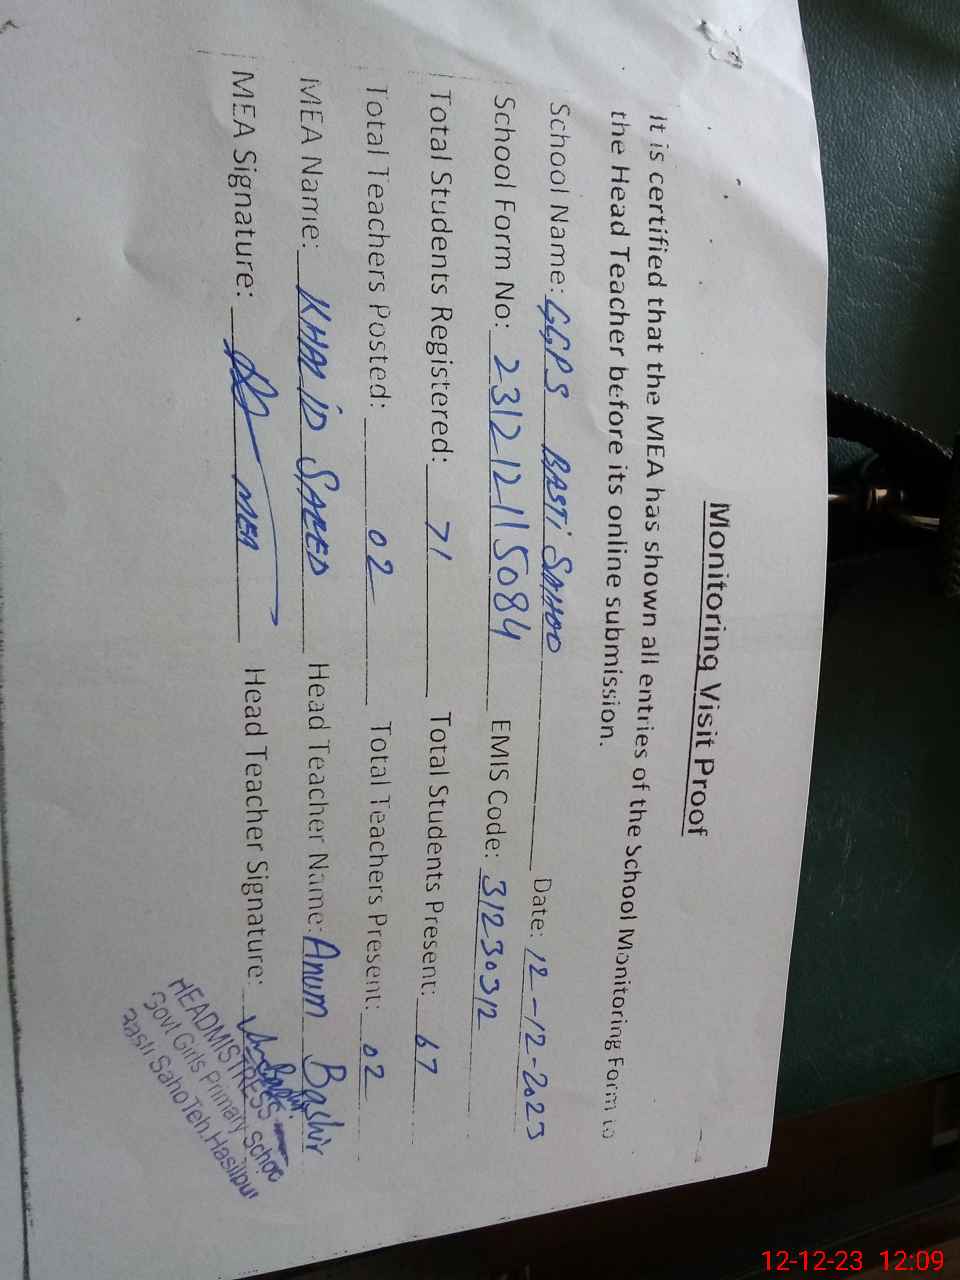 Monitoring Visit Proof
It is certified that the MEA has shown all entries of the School Monitoring Form to
the Head Teacher before its online submission.
School Name: GGPS BASTI SAHOO Date: 12-12-2023
School Form No: 231212115084 EMIS Code: 31230312
Total Students Registered: 71 Total Students Present: 67
Total Teachers Posted: 02 Total Teachers Present: 02
MEA Name: KHALID SAEED Head Teacher Name: Anum Bashir
MEA Signature: MEA Head Teacher Signature:
HEADMISTRESS
Govt Girls Primary Schoo
Basti Saho Teh. Hasilpur
12-12-23 12:09